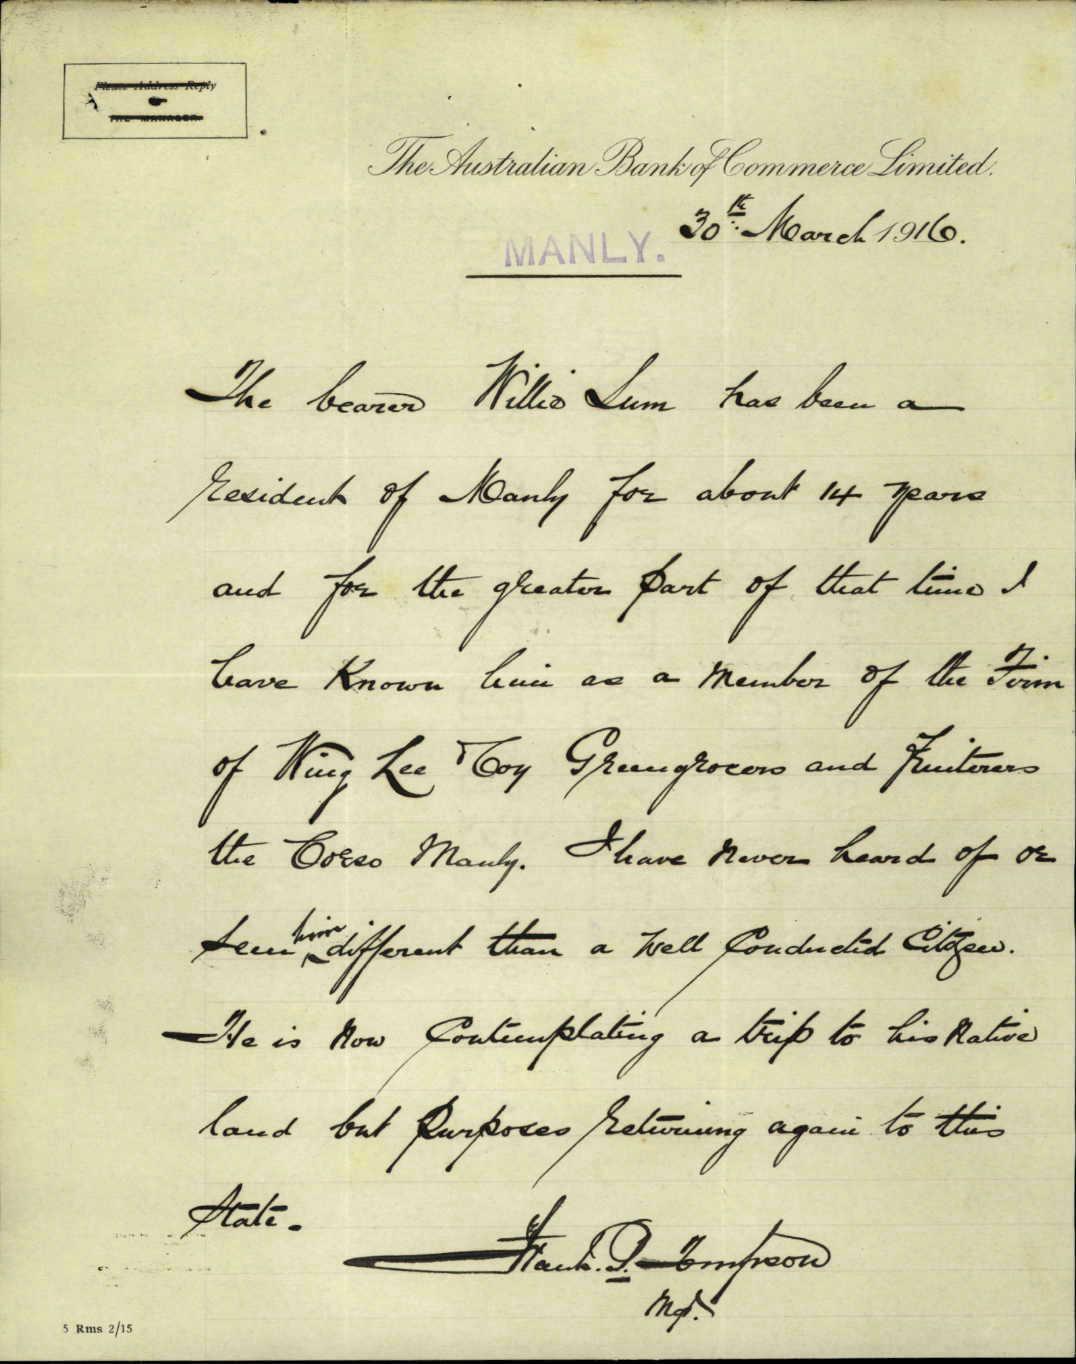 Please Address Reply
TO
THE MANAGER
The Australian Bank of Commerce Limited.
MANLY. 30th March 1916.
The bearer Willie Lum has been a
resident of Manly for about 14 years
and for the greater part of that time I
have Known him as a Member of the Firm
of Wing Lee & Coy Greengrocers and Fruiterers
the Corso Manly. I have Never heard of or
seen him different than a well Conducted Citizen.
He is Now Contemplating a trip to his Native
land but purposes returning again to this
State.
Frank. P. Tompson
Mgr.
5 Rms 2/15